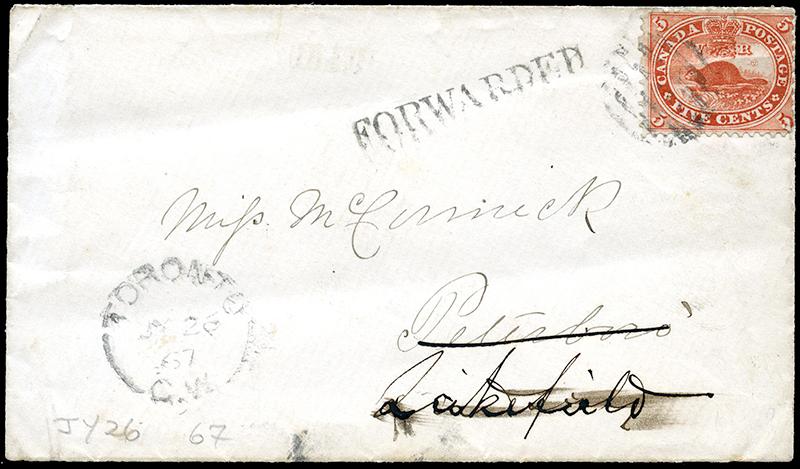 FORWARDED
5 CANADA POSTAGE 5
V R
5 FIVE CENTS 5
Miss McCormick
Peterboro'
Lakefield
TORONTO
JY 26
67
C.W.
JY26 67